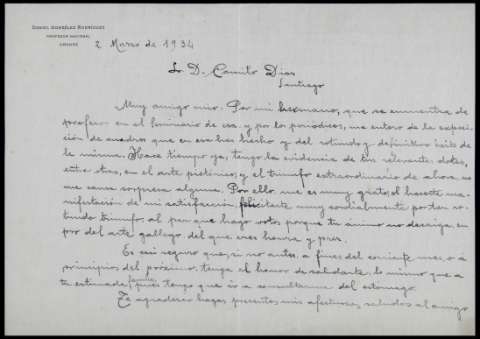 DANIEL GONZÁLEZ RODRÍGUEZ
PROFESOR NACIONAL
2 Marzo de 1934
Sr. D. Camilo Díaz
Santiago
Muy amigo mío: Por mi hermano, que se encuentra de
profesor en el Seminario de esa y por los periódicos, me entero de la exposi-
ción de cuadros que en esa has hecho y del rotundo y definitivo éxito de
la misma. Hace tiempo ya, tengo la evidencia de tus relevantes dotes,
entre otras, en el arte pictórico; y el triunfo extraordinario de ahora, no
me causa sorpresa alguna. Por ello me es muy grato, el hacerte ma-
nifestación de mi satisfacción, felicitarte muy cordialmente por tan ro-
tundo triunfo al par que hago votos porque tu ánimo no decaiga, en
pro del arte gallego del que eres honra y prez.
Es casi seguro que, si no antes, a fines del corriente mes, o á
principios del próximo, tenga el honor de saludarte, lo mismo que a
tu estimada familia, pues tengo que ir a consultarme del estómago.
Te agradeceré hagas presentes mis afectuosos saludos al amigo